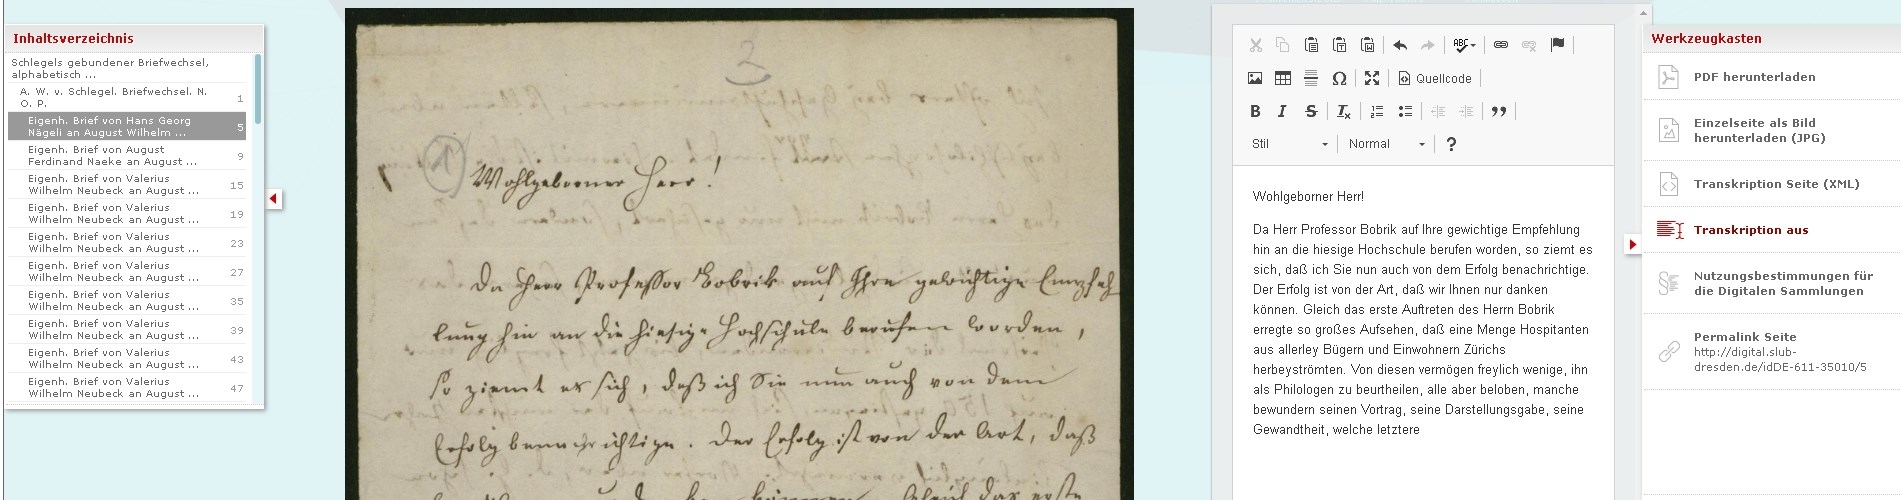 Inhaltsverzeichnis
Schlegels gebundener Briefwechsel,
alphabetisch ...
A. W. v. Schlegel. Briefwechsel. N.
O. P.
1
Eigenh. Brief von Hans Georg
Nägeli an August Wilhelm ...
5
Eigenh. Brief von August
Ferdinand Naeke an August ...
9
Eigenh. Brief von Valerius
Wilhelm Neubeck an August ...
15
Eigenh. Brief von Valerius
Wilhelm Neubeck an August ...
19
Eigenh. Brief von Valerius
Wilhelm Neubeck an August ...
23
Eigenh. Brief von Valerius
Wilhelm Neubeck an August ...
27
Eigenh. Brief von Valerius
Wilhelm Neubeck an August ...
35
Eigenh. Brief von Valerius
Wilhelm Neubeck an August ...
39
Eigenh. Brief von Valerius
Wilhelm Neubeck an August ...
43
Eigenh. Brief von Valerius
Wilhelm Neubeck an August ...
47
3
1
Wohlgeborner Herr!
Da Herr Professor Bobrik auf Ihre gewichtige Empfeh
lung hin an die hiesige Hochschule berufen worden,
so ziemt es sich, daß ich Sie nun auch von dem
Erfolg benachrichtige. Der Erfolg ist von der Art, daß
können. Gleich das erste
ABC
Quellcode
B I S Tx
Stil
Normal
?
Wohlgeborner Herr!
Da Herr Professor Bobrik auf Ihre gewichtige Empfehlung
hin an die hiesige Hochschule berufen worden, so ziemt es
sich, daß ich Sie nun auch von dem Erfolg benachrichtige.
Der Erfolg ist von der Art, daß wir Ihnen nur danken
können. Gleich das erste Auftreten des Herrn Bobrik
erregte so großes Aufsehen, daß eine Menge Hospitanten
aus allerley Bügern und Einwohnern Zürichs
herbeyströmten. Von diesen vermögen freylich wenige, ihn
als Philologen zu beurtheilen, alle aber beloben, manche
bewundern seinen Vortrag, seine Darstellungsgabe, seine
Gewandtheit, welche letztere
Werkzeugkasten
PDF herunterladen
Einzelseite als Bild
herunterladen (JPG)
Transkription Seite (XML)
Transkription aus
Nutzungsbestimmungen für
die Digitalen Sammlungen
Permalink Seite
http://digital.slub-
dresden.de/idDE-611-35010/5